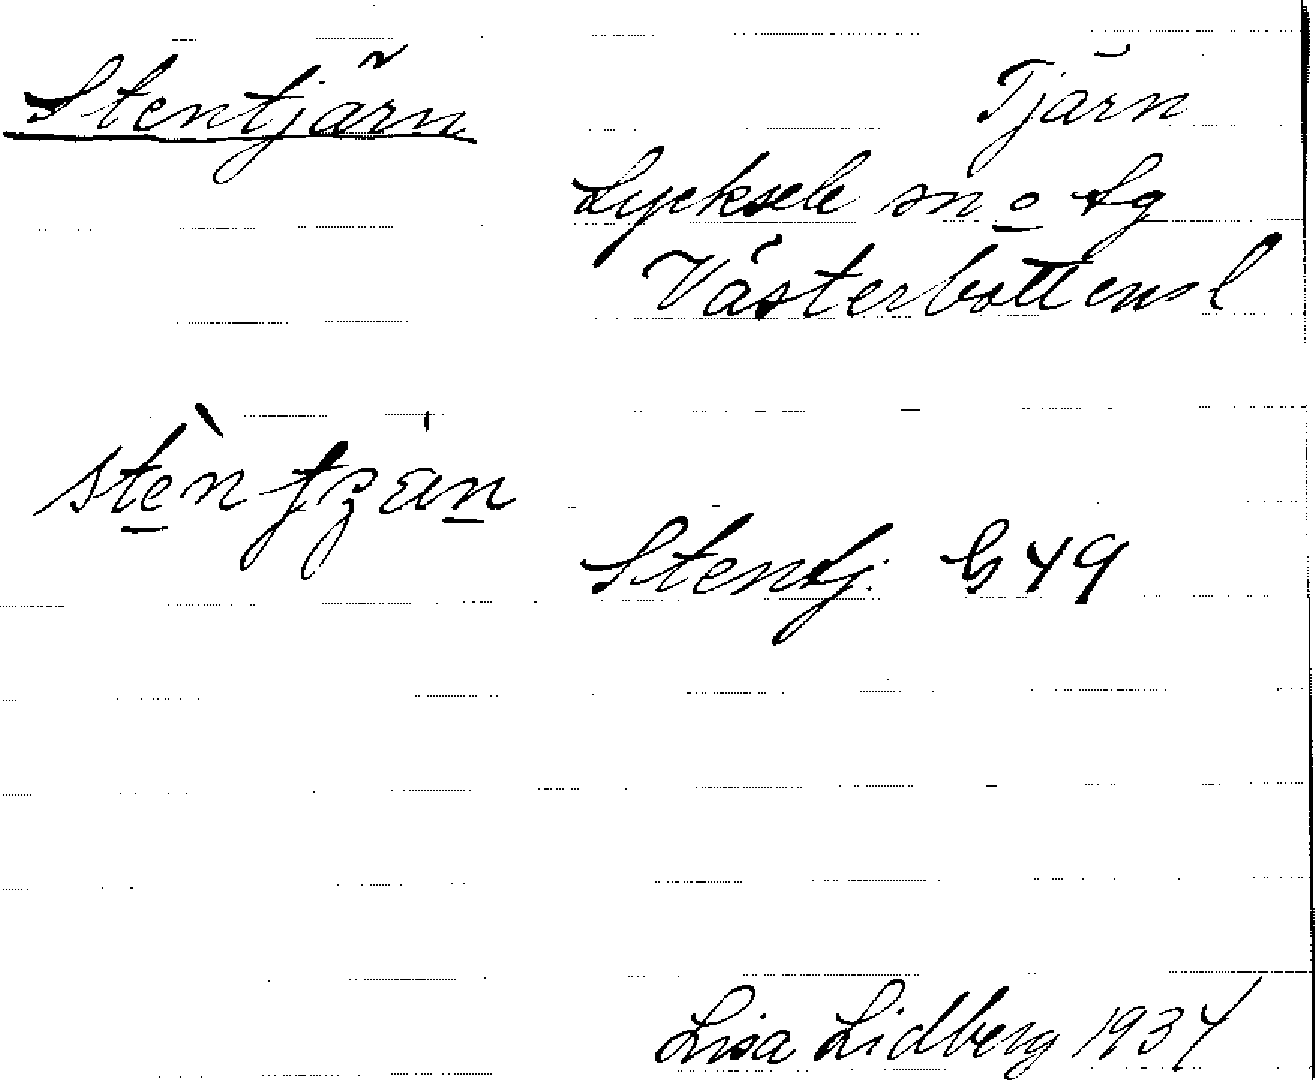 Stentjärn
Tjärn
Lycksele sn o lg
Västerbottens l
Stentj. G 49
Lisa Lidberg 1934